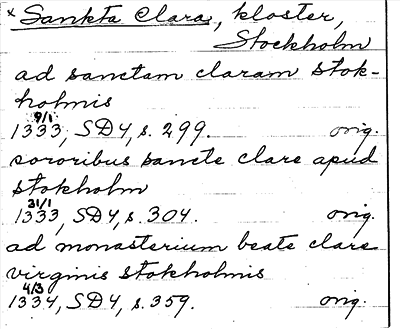 x Sankta Clara, kloster,
Stockholm
ad sanctam claram stok-
holmis
9/1
1333, SD4, s. 299. orig.
sororibus sancte clare apud
stokholm
31/1
1333, SD4, s. 304. orig.
ad monasterium beate clare
virginis stokholmis
4/3
1334, SD4, s. 359. orig.